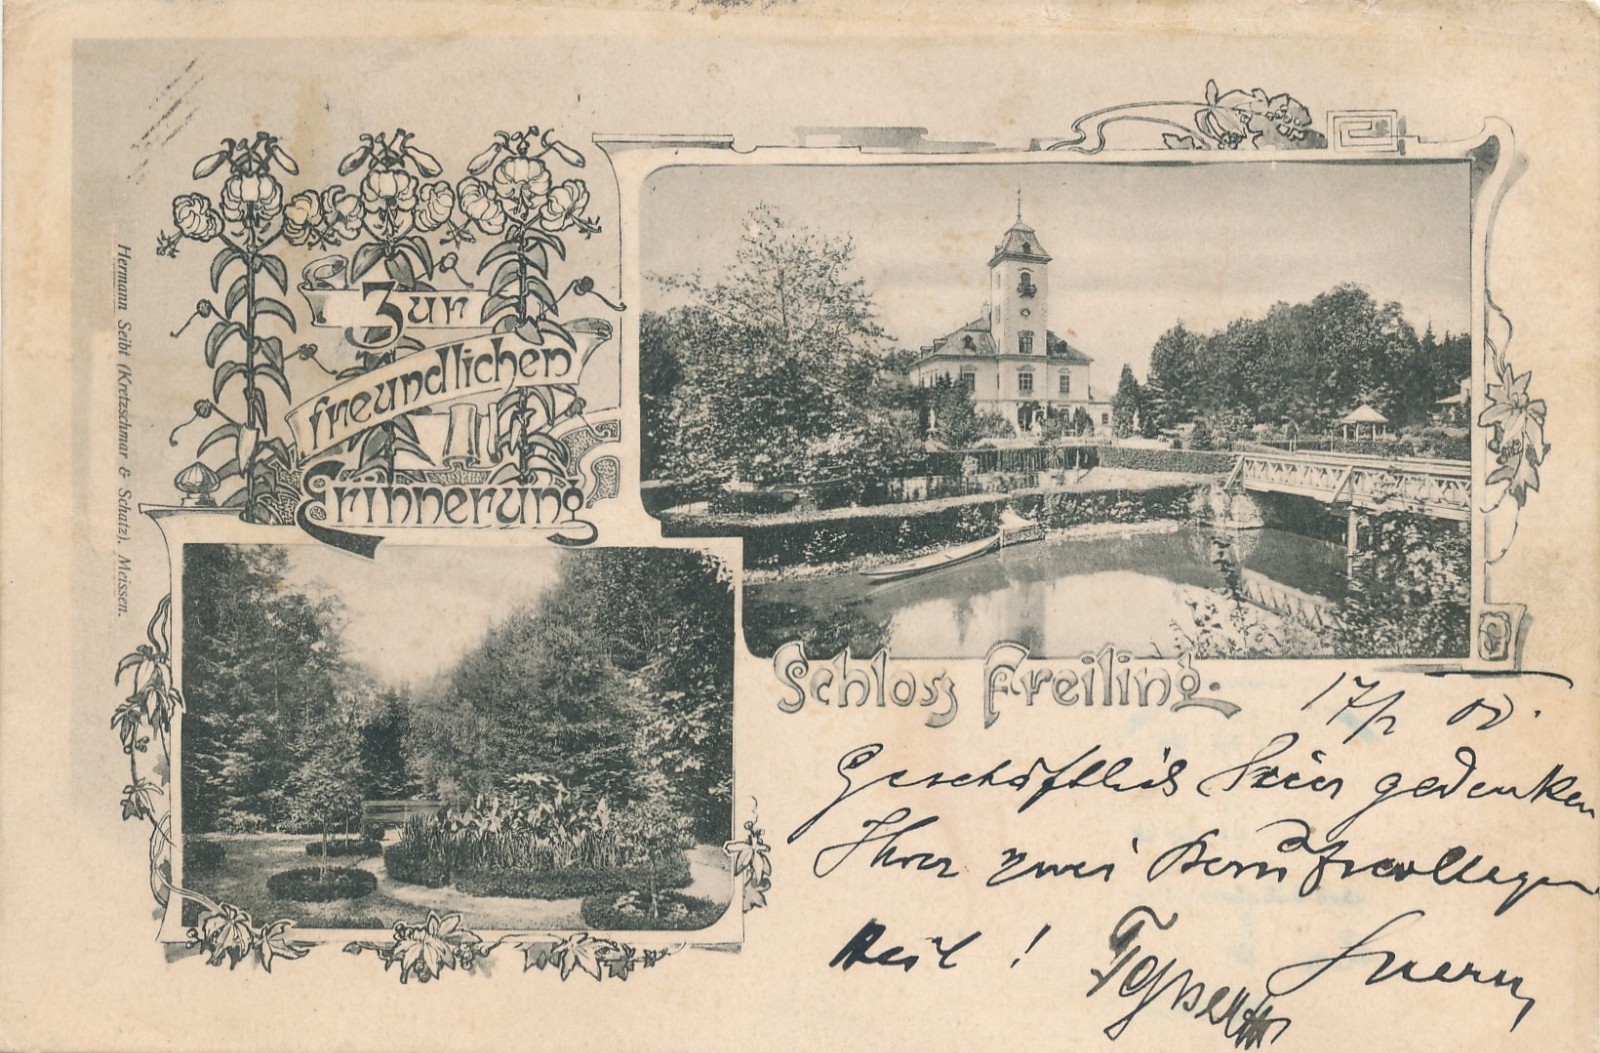 Zur
freundlichen
Erinnerung
Hermann Seibt (Kretzschmar & Schatz), Meissen.
Schloss Freiling.
17/2
Geschäftlich hier gedenken
Ihrer zwei Berufscollegen
Heil!